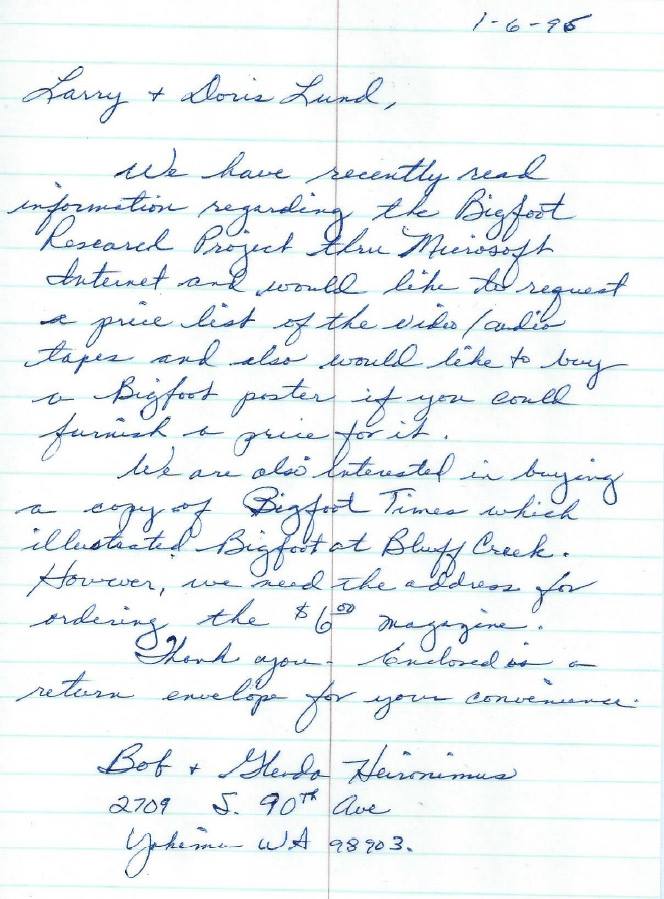 1-6-95
Larry + Doris Lund,
We have recently read
information regarding the Bigfoot
Research Project thru Microsoft
Internet and would like to request
a price list of the video/audio
tapes and also would like to buy
a Bigfoot poster if you could
furnish a price for it.
We are also interested in buying
a copy of Bigfoot Times which
illustrated Bigfoot at Bluff Creek.
However, we need the address for
ordering the $6.00 magazine.
Thank you - Enclosed is a
return envelope for your convenience.
Bob + Glenda Heironimus
2709 S. 90th Ave
Yakima WA 98903.